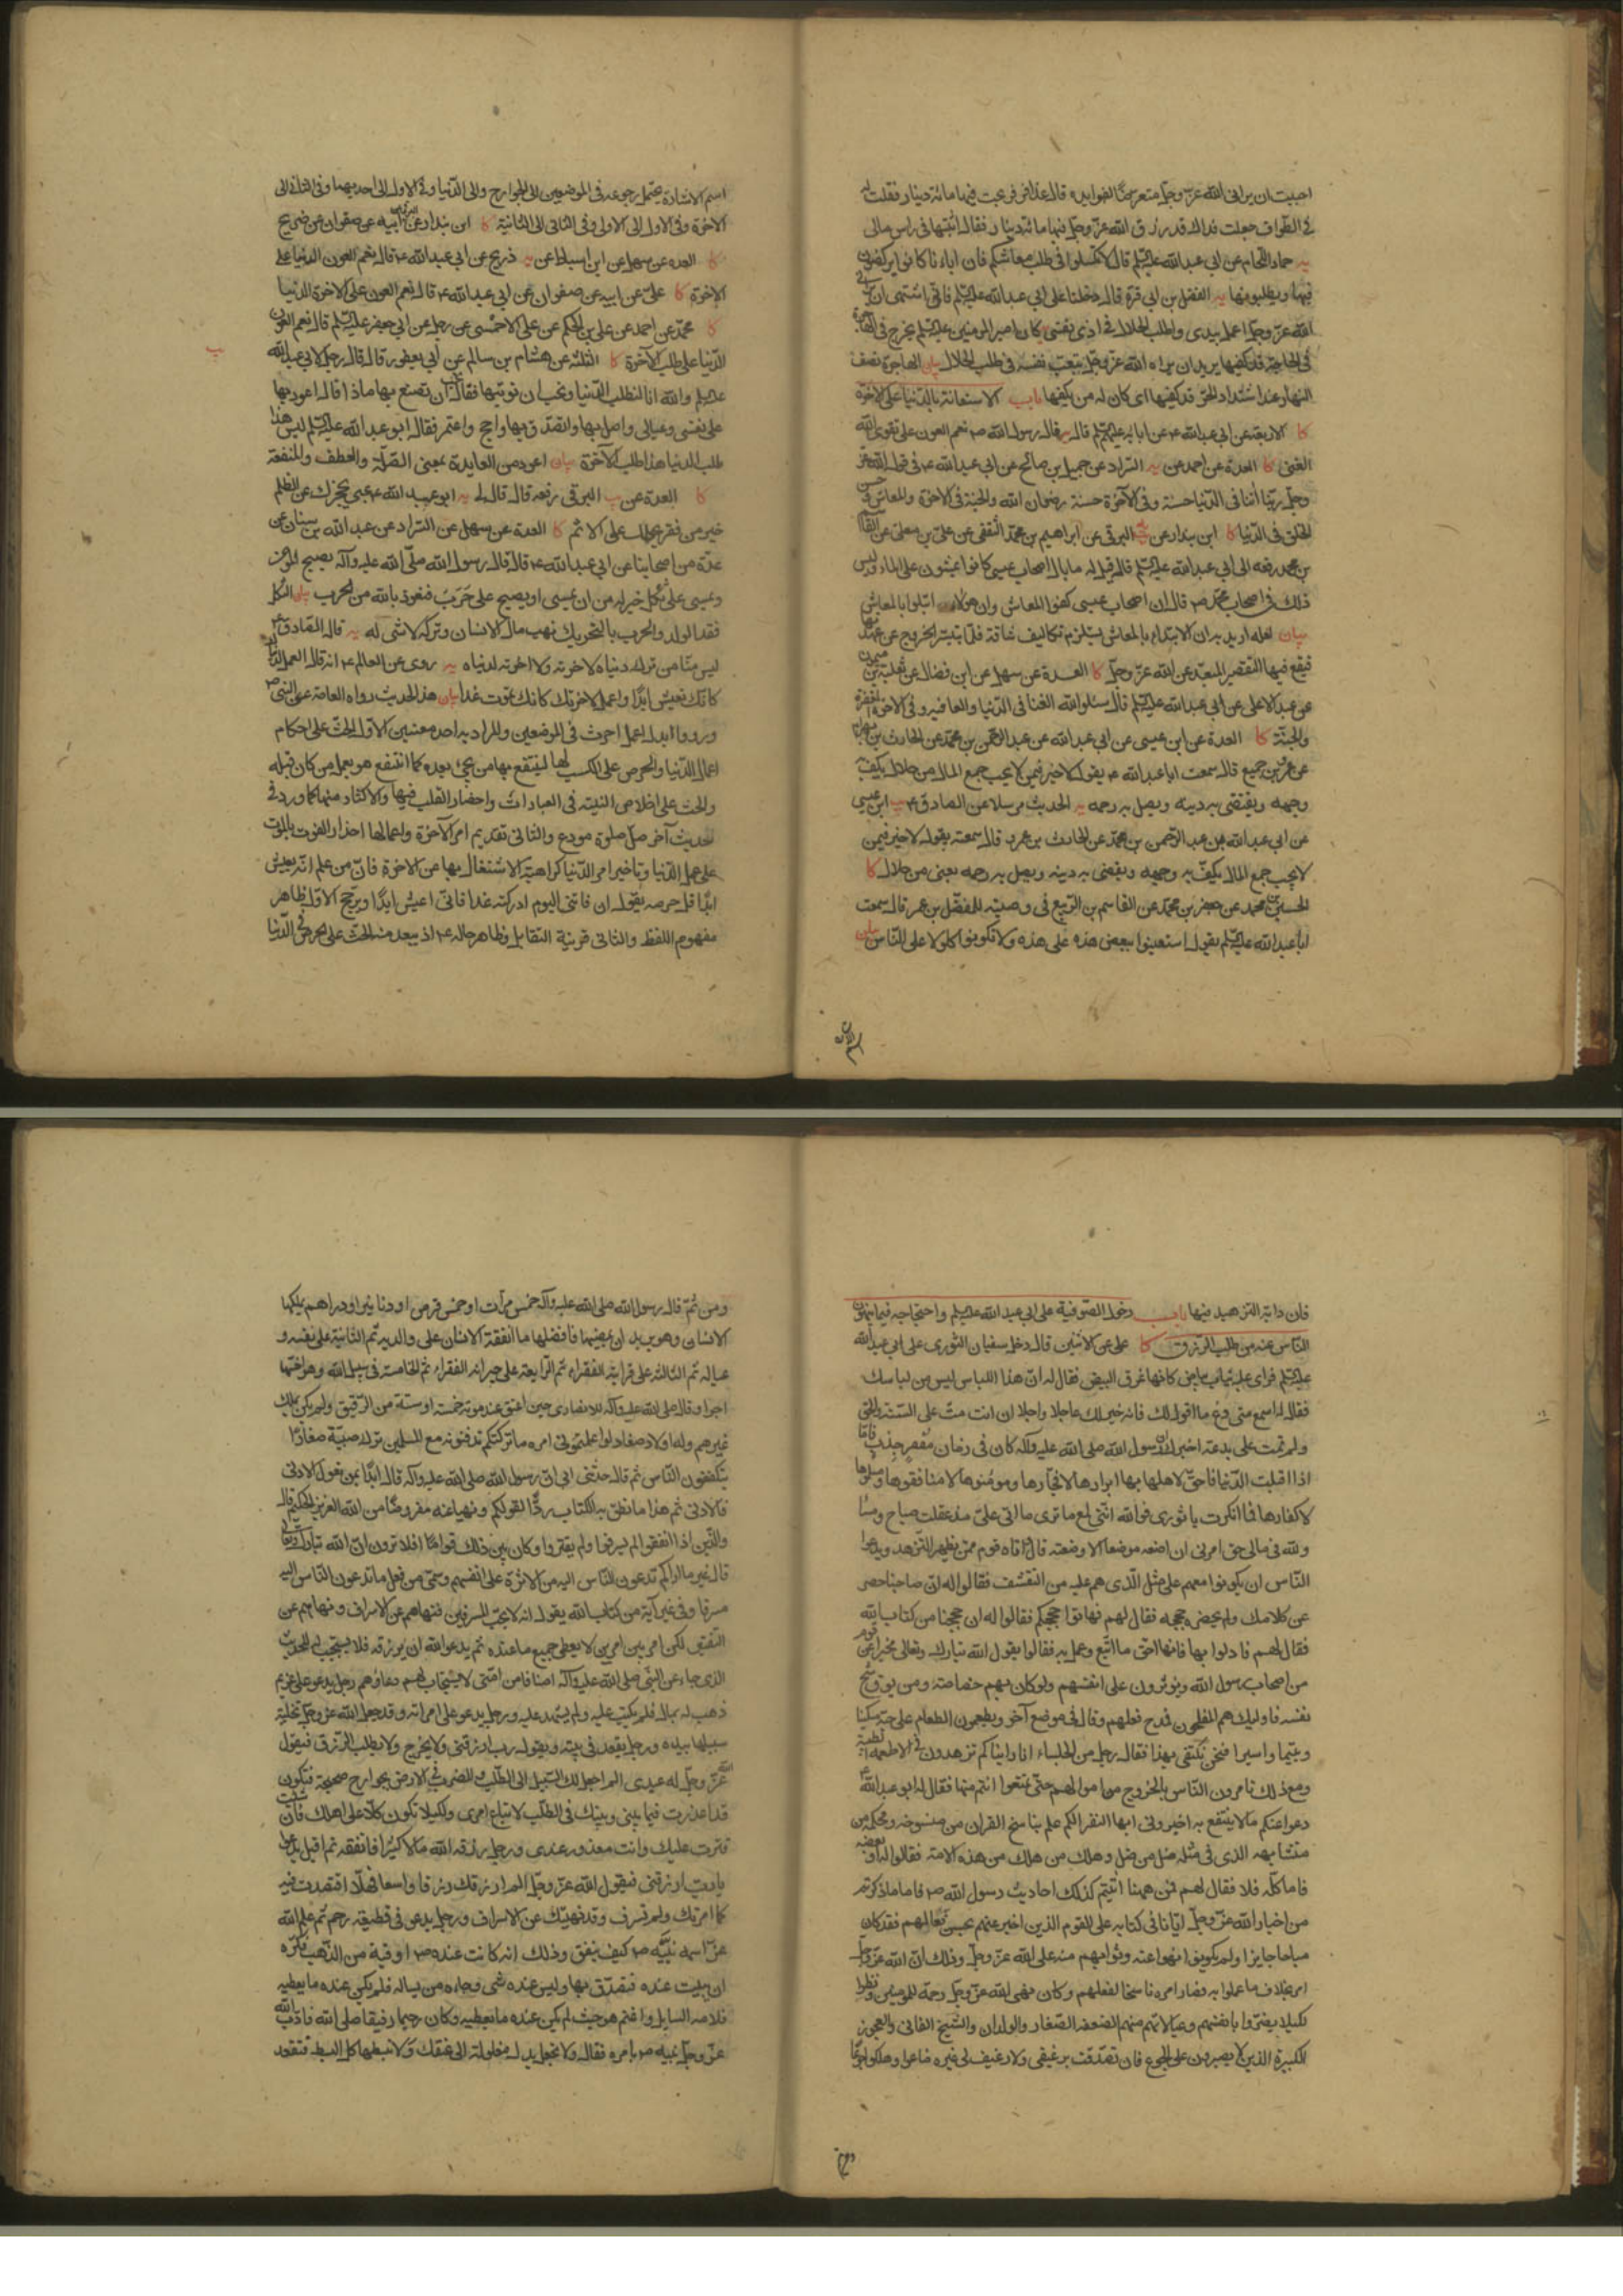 احببت ان يرانى الله عز وجل متعرضا لفوايده قال عذافر فربحت فيها مائة دينار فقلت له
فى الطواف جعلت فداك قد رزق الله عز وجل فيها مائة دينار فقال اثبتها فى راس مالى
يه حماد اللحام عن ابى عبد الله عليه السلم قال لا تكسلوا فى طلب معاشكم فان اباءنا كانوا يركضون
فيها ويطلبونها يه الفضل بن ابى قرة قال دخلنا على ابى عبد الله عليه السلم فانى اشتهى ان يرانى
الله عز وجل اعمل بيدى واطلب الحلال فى اذى نفسى كان امير المومنين عليه السلم يخرج فى الهاجرة
فى الحاجة قد كفيها يريد ان يراه الله عز وجل يتعب نفسه فى طلب الحلال بيان الهاجرة نصف
النهار عند اشتداد الحر قد كفيها اى كان له من يكفيها باب الاستعانة بالدنيا على الاخرة
كا الاربعة عن ابى عبد الله ع عن ابائه عليهم السلم قال قال رسول الله ص نعم العون على تقوى الله
الغنى كا العدة عن احمد عن يه السراد عن جميل بن صالح عن ابى عبد الله ع فى قول الله عز
وجل ربنا اتنا فى الدنيا حسنة وفى الآخرة حسنة رضوان الله والجنة فى الاخرة والمعاش وحسن
الخلق فى الدنيا كا ابن بندار عن البرقى عن ابراهيم بن محمد الثقفى عن على بن معلى عن القاسم
بن محمد رفعه الى ابى عبد الله عليه السلم قال قيل له ما بال اصحاب عيسى كانوا يمشون على الماء وليس
ذلك فى اصحاب محمد ص قال ان اصحاب عيسى كفوا المعاش وان هولاء ابتلوا بالمعاش
بيان لعله اريد به ان الابتلاء بالمعاش يستلزم تكاليف شاقة قلما يتيسر الخروج عن عهدتها
فيقع فيها التقصير المبعد عن الله عز وجل كا العدة عن سهل عن ابن فضال عن ثعلبة بن ميمون
عن عبد الاعلى عن ابى عبد الله عليه السلم قال سلوا الله الغنا فى الدنيا والعافية وفى الاخرة المغفرة
والجنة كا العدة عن ابن عيسى عن ابى عبد الله عن عبد الرحمن بن محمد عن الحارث بن بهرام
عن عمرو بن جميع قال سمعت ابا عبد الله ع يقول لا خير فيمن لا يحب جمع المال من حلال يكف به
وجهه ويقضى به دينه ويصل به رحمه يه الحديث مرسلا عن الصادق ع يب ابن عيسى
عن ابى عبد الله عن عبد الرحمن بن محمد عن الحارث بن عمرو قال سمعته يقول لا خير فيمن
لا يحب جمع المال يكف به وجهه ويقضى به دينه ويصل به رحمه يعنى من حلال كا
الحسين بن محمد عن جعفر بن محمد عن القاسم بن الربيع فى وصيته للمفضل بن عمر قال سمعت
ابا عبد الله عليه السلم يقول استعينوا ببعض هذه على هذه ولا تكونوا كلولا على الناس بيان
اسم الاشارة يحتمل رجوعه فى الموضعين الى الجوارح والى الدنيا وفى الاول الى احديهما وفى الثانى الى
الاخرة وفى الاول الى الاولى وفى الثانى الى الثانية كا ابن بندار عن البرقى عن ابيه عن صفوان عن ذريح
كا العدة عن سهل عن ابن اسباط عن يه ذريح عن ابى عبد الله ع قال نعم العون الدنيا على
الاخرة كا على عن ابيه عن صفوان عن ابى عبد الله ع قال نعم العون على الاخرة الدنيا
كا محمد عن احمد عن على بن الحكم عن على الاحمسى عن رجل عن ابى جعفر عليه السلم قال نعم العون
الدنيا على طلب الآخرة كا الثلثة عن هشام بن سالم عن ابى يعفور قال قال رجل لابى عبد الله
يب
عليه السلم والله انا لنطلب الدنيا ونحب ان نوتيها فقال تحب ان تصنع بها ماذا قال اعود بها
على نفسى وعيالى واصل بها واتصدق بها واحج واعتمر فقال ابو عبد الله عليه السلم ليس هذا
طلب الدنيا هذا طلب الآخرة بيان اعود من العايدة بمعنى الصلة والعطف والمنفعة
كا العدة عن يب البرقى رفعه قال قال لى يه ابو عبد الله ع غنى يحجزك عن الظلم
خير من فقر يحملك على الاثم كا العدة عن سهل عن السراد عن عبد الله بن سنان عن
عدة من اصحابنا عن ابى عبد الله ع قال قال رسول الله صلى الله عليه وآله يصبح المومن
ويمسى على ثكل خير له من ان يمسى او يصبح على حرب فنعوذ بالله من الحرب بيان الثكل
فقد الولد والحرب بالتحريك نهب مال الانسان وتركه لا شى له يه قال الصادق ع
ليس منا من ترك دنياه لاخرته ولا اخرته لدنياه يه روى عن العالم ع انه قال اعمل لدنياك
كانك تعيش ابدا واعمل لاخرتك كانك تموت غدا بيان هذا الحديث رواه العامة عن النبى ص
ورووا بدل اعمل احرث فى الموضعين والمراد به احد معنيين الاول الحث على احكام
اعمال الدنيا والحرص على الكسب لها لينتفع بها من يجئ بعده كما انتفع هو بعمل من كان قبله
والحث على اخلاص النية فى العبادات واحضار القلب فيها والاكثار منها كما ورد فى
حديث آخر صل صلوة مودع والثانى تقديم امر الآخرة واعمالها احذار الفوت بالموت
على عمل الدنيا وتاخير امر الدنيا كراهية الاشتغال بها عن الاخرة فان من علم انه يعيش
ابدا قل حرصه يقول ان فاتنى اليوم ادركته غدا فانى اعيش ابدا ويرجح الاول ظاهر
مفهوم اللفظ والثانى قرينة التقابل وظاهر حاله ع اذ يبعد منه الحث على الحرص فى الدنيا
فان دابه التزهيد فيها باب دخول الصوفية على ابى عبد الله عليه السلم واحتجاجه فيما ينهون
الناس عنه من طلب الرزق كا على عن الاثنين قال دخل سفيان الثورى على ابى عبد الله
عليه السلم فراى عليه ثياب بياض كانها غرقئ البيض فقال له ان هذا اللباس ليس من لباسك
فقال له اسمع منى وع ما اقول لك فانه خير لك عاجلا واجلا ان انت مت على السنة والحق
ولم تمت على بدعة اخبرك ان رسول الله صلى الله عليه وآله كان فى زمان مقفر جدب فاما
اذا اقبلت الدنيا فاحق اهلها بها ابرارها لا فجارها ومومنوها لا منافقوها ومسلموها
لا كفارها فما انكرت يا ثورى فوالله اننى لمع ما ترى ما اتى على مذ عقلت صباح ومسا
ولله فى مالى حق امرنى ان اضعه موضعا الا وضعته قال فاتاه قوم ممن يظهر التزهد ويدعوا
الناس ان يكونوا معهم على مثل الذى هم عليه من التقشف فقالوا له ان صاحبنا حصر
عن كلامك ولم يحضره حججه فقال لهم فهاتوا حججكم فقالوا له ان حججنا من كتاب الله
فقال لهم فادلوا بها فانها احق ما اتبع وعمل به فقالوا يقول الله تبارك وتعالى مخبرا عن قوم
من اصحاب رسول الله ويوثرون على انفسهم ولو كان بهم خصاصة ومن يوق شح
نفسه فاوليك هم المفلحون فمدح فعلهم وقال فى موضع آخر ويطعمون الطعام على حبه مسكينا
ويتيما واسيرا فنحن نكتفى بهذا فقال رجل من الجلساء انا راينا كم تزهدون فى الاطعمة الطيبة
ومع ذلك تامرون الناس بالخروج من اموالهم حتى تمتعوا انتم منها فقال له ابو عبد الله ع
دعوا عنكم ما لا ينتفع به اخبرونى ايها النفر الكم علم بناسخ القران من منسوخه ومحكمه من
متشابهه الذى فى مثله ضل من ضل وهلك من هلك من هذه الامة فقالوا له او بعضه
فاما كله فلا فقال لهم فمن ههنا اتيتم كذلك احاديث رسول الله ص فاما ما ذكرتم
من اخبار الله عز وجل ايانا فى كتابه على القوم الذين اخبر عنهم بحسن فعالهم فقد كان
مباحا جايزا ولم يكونوا نهوا عنه وثوابهم منه على الله عز وجل وذلك ان الله عز وجل
امر بخلاف ما عملوا به فصار امره ناسخا لفعلهم وكان نهى الله عز وجل رحمة للمومنين ونظرا
لكيلا يضروا بانفسهم وعيالاتهم منهم الضعفة الصغار والولدان والشيخ الفانى والعجوز
الكبيرة الذين لا يصبرون على الجوع فان تصدقت برغيفى ولا رغيف لى غيره ضاعوا وهلكوا جوعا
ومن ثم قال رسول الله صلى الله عليه وآله خمس مرات او خمس قرص او دنانير او دراهم يملكها
الانسان وهو يريد ان يمضيها فافضلها ما انفقه الانسان على والديه ثم الثانية على نفسه و
عياله ثم الثالثة على قرابته الفقراء ثم الرابعة على جيرانه الفقراء ثم الخامسة فى سبيل الله وهو اخسها
اجرا وقال صلى الله عليه وآله للانصارى حين اعتق عند موته خمسة او ستة من الرقيق ولم يكن يملك
غيرهم وله اولاد صغار لو اعلمتمونى امره ما تركتكم تدفنونه مع المسلمين ترك صبية صغارا
يتكففون الناس ثم قال حدثنى ابى ان رسول الله صلى الله عليه وآله قال ابدا بمن تعول الادنى
فالادنى ثم هذا ما نطق به الكتاب ردا لقولكم ونهيا عنه مفروضا من الله العزيز الحكيم قال
والذين اذا انفقوا لم يسرفوا ولم يقتروا وكان بين ذلك قواما افلا ترون ان الله تبارك وتعالى
قال غير ما اراكم تدعون الناس اليه من الاثرة على انفسهم وسمى من فعل ما تدعون الناس اليه
مسرفا وفى غير آية من كتاب الله يقول انه لا يحب المسرفين فنهاهم عن الاسراف ونهاهم عن
التقتير لكن امر بين امرين لا يعطى جميع ما عنده ثم يدعو الله ان يرزقه فلا يستجيب له للحديث
الذى جاء عن النبى صلى الله عليه وآله ان اصنافا من امتى لا يستجاب لهم دعاؤهم رجل يدعو على غريم
ذهب له بمال فلم يكتب عليه ولم يشهد عليه ورجل يدعو على امراته وقد جعل الله عز وجل تخلية
سبيلها بيده ورجل يقعد فى بيته ويقول رب ارزقنى ولا يخرج ولا يطلب الرزق فيقول
الله عز وجل له عبدى الم اجعل لك السبيل الى الطلب والضرب فى الارض بجوارح صحيحة فتكون
قد اعذرت فيما بينى وبينك فى الطلب لاتباع امرى ولكيلا تكون كلا على اهلك فان شئت
قترت عليك وانت معذور عندى ورجل رزقه الله مالا كثيرا فانفقه ثم اقبل يدعوا
يا رب ارزقنى فيقول الله عز وجل الم ارزقك رزقا واسعا فهلا اقتصدت فيه
كما امرتك ولم تسرف وقد نهيتك عن الاسراف ورجل يدعو فى قطيعة رحم ثم علم الله
عز اسمه نبيه ص كيف ينفق وذلك انه كانت عنده ص اوقية من الذهب فكره
ان يبيت عنده فتصدق بها وليس عنده شى وجاءه من يساله فلم يكن عنده ما يعطيه
فلامه السايل واغتم هو حيث لم يكن عنده ما يعطيه وكان رحيما رفيقا صلى الله عليه وآله فادب الله
عز وجل نبيه ص بامره فقال ولا تجعل يدك مغلولة الى عنقك ولا تبسطها كل البسط فتقعد